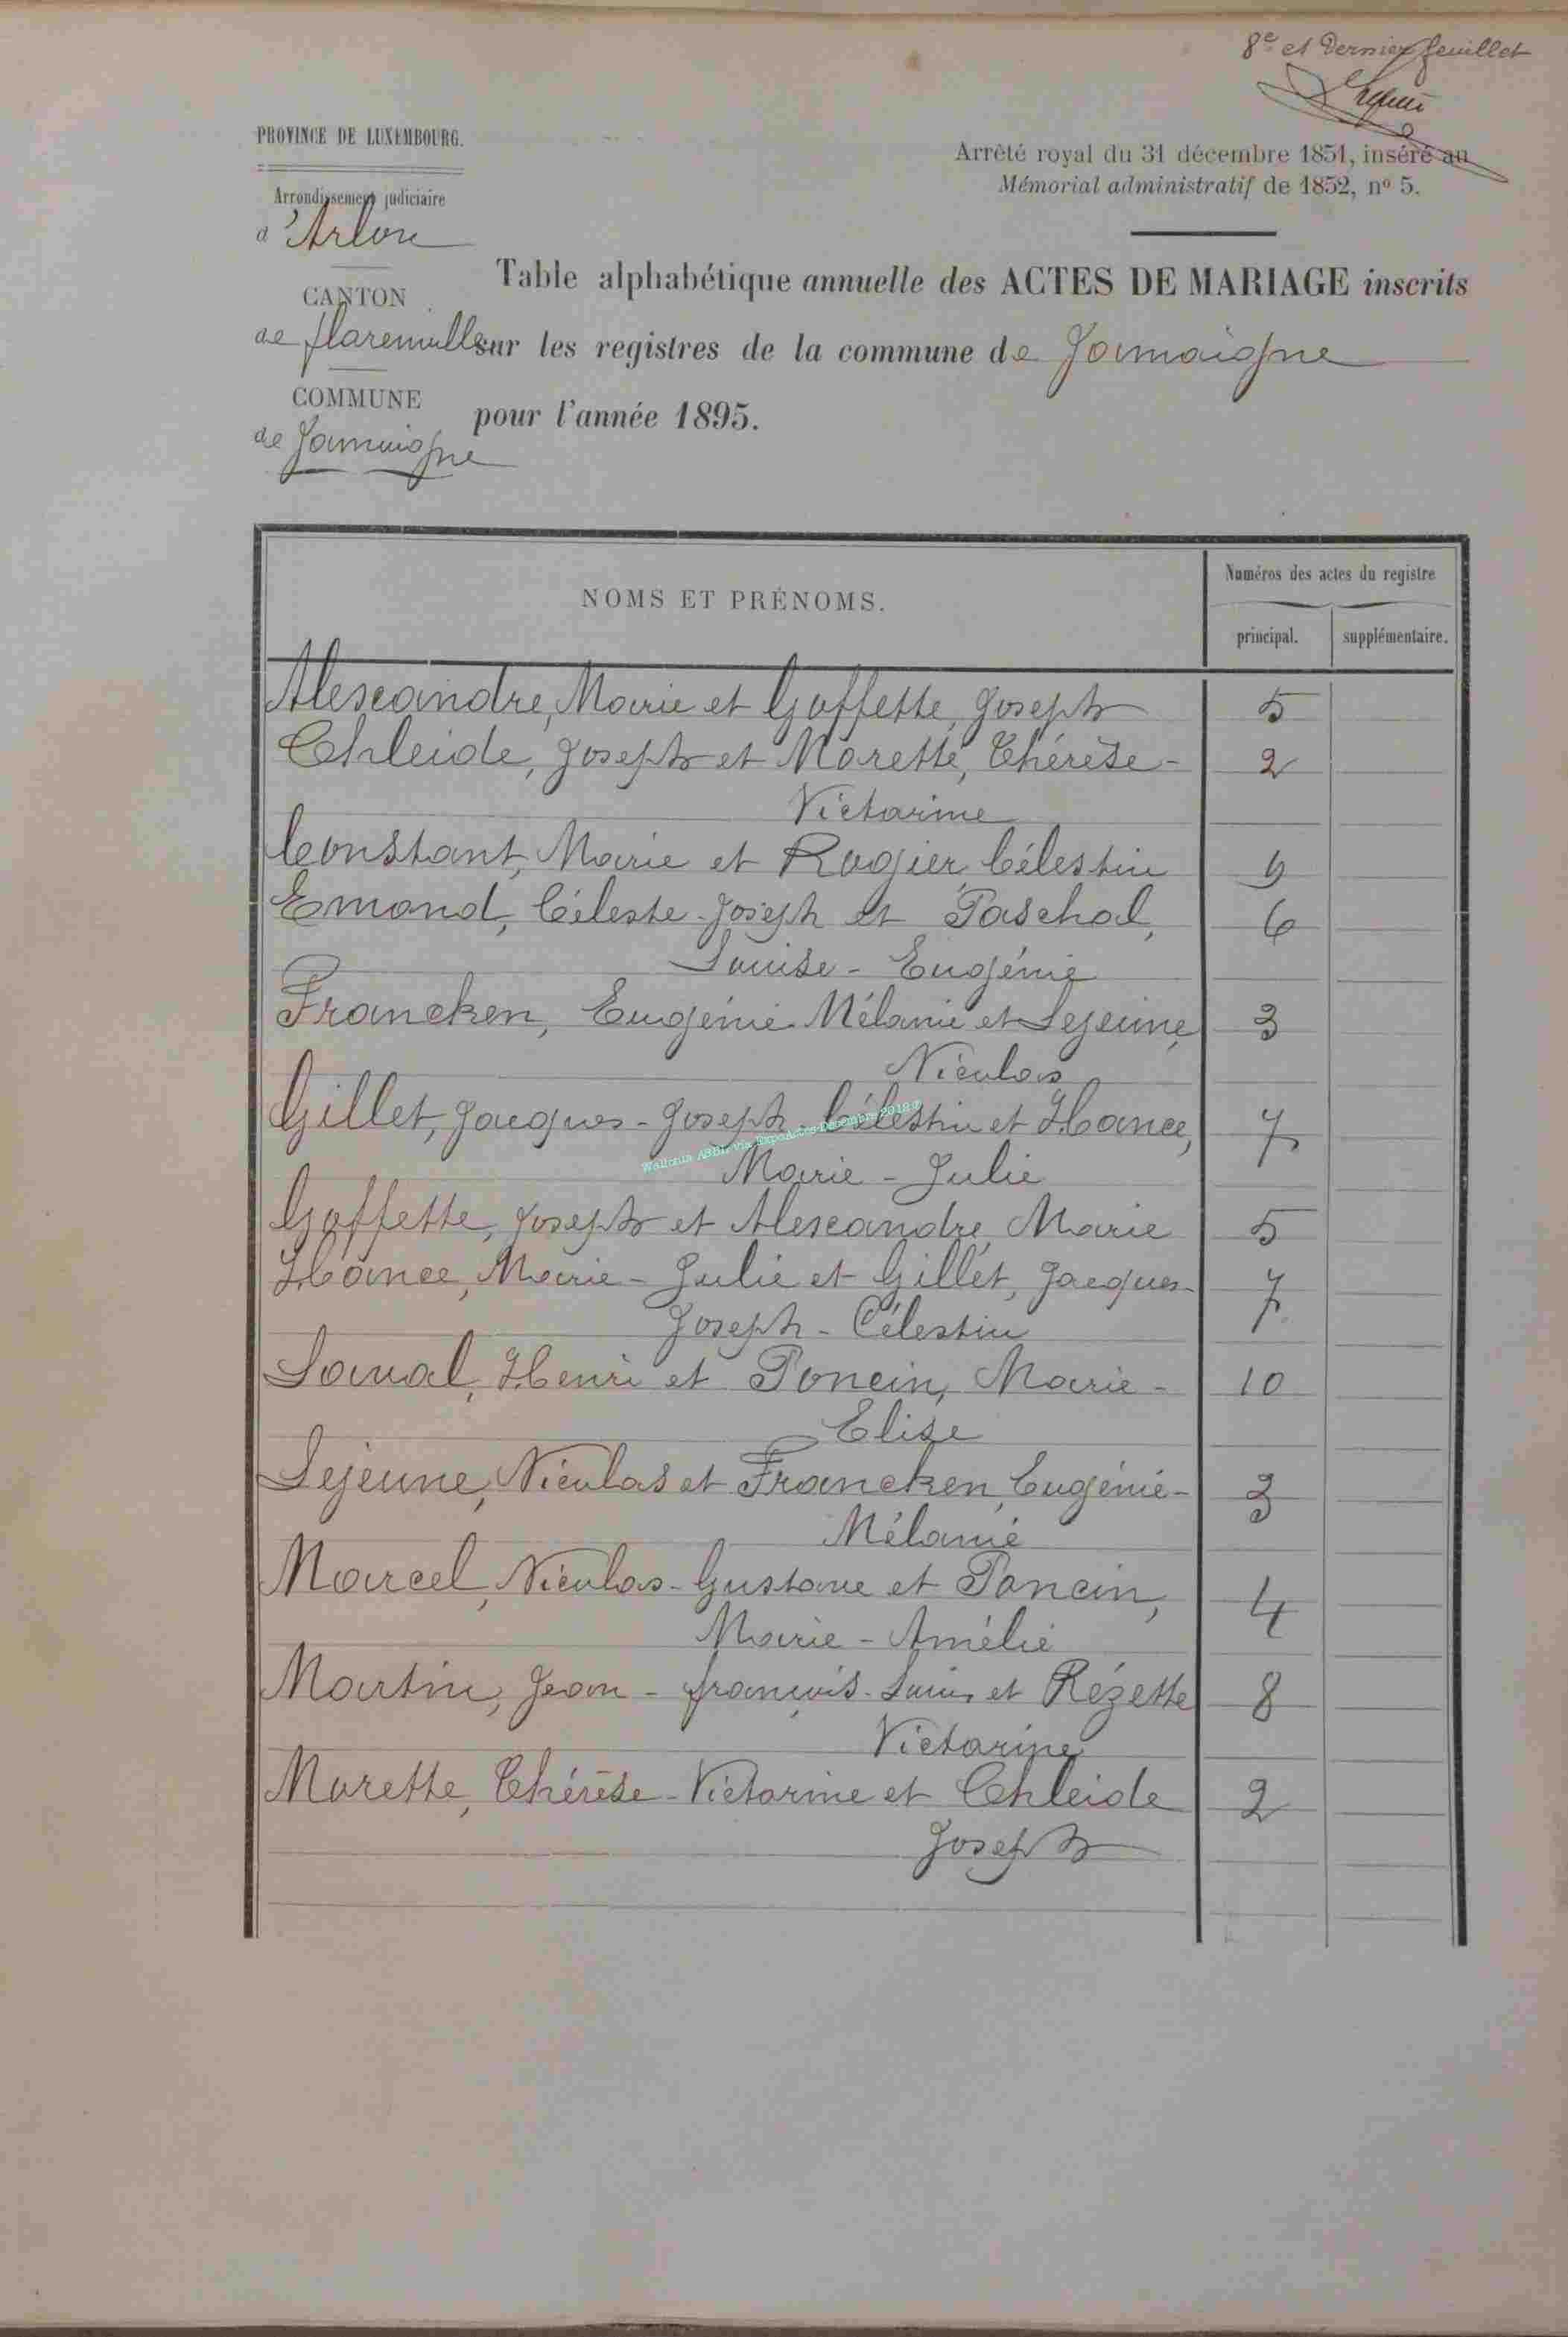 8e et Dernier feuillet
PROVINCE DE LUXEMBOURG.
Arrêté royal du 31 décembre 1851, inséré au
Mémorial administratif de 1852, nº 5.
Arrondissement judiciaire
d'Arlon
Table alphabétique annuelle des ACTES DE MARIAGE inscrits
CANTON
de Florenville sur les registres de la commune de Jamoigne
COMMUNE
pour l'année 1895.
de Jamoigne
NOMS ET PRÉNOMS.
Numéros des actes du registre
principal. supplémentaire.
Alexandre, Marie et Goffette, Joseph 5
Chleide, Joseph et Morette, Thérèse- 2
Victorine
Constant, Marie et Rogier, Célestin 9
Emond, Céleste-Joseph et Paschal, 6
Louise-Eugénie
Francken, Eugénie Mélanie et Lejeune, 3
Nicolas
Gillet, Jacques-Joseph Célestin et Hance, 7
Wallonia ASBL via ExpoActes Décembre 2019
Marie-Julie
Goffette, Joseph et Alexandre, Marie 5
Hance, Marie-Julie et Gillet, Jacques- 7
Joseph-Célestin
Laval, Henri et Poncin, Marie- 10
Elise
Lejeune, Nicolas et Francken, Eugénie- 3
Mélanie
Marcel, Nicolas-Gustave et Poncin, 4
Marie-Amélie
Martin, Jean-françois-Louis et Rézette 8
Victorine
Morette, Thérèse-Victorine et Chleide 2
Joseph